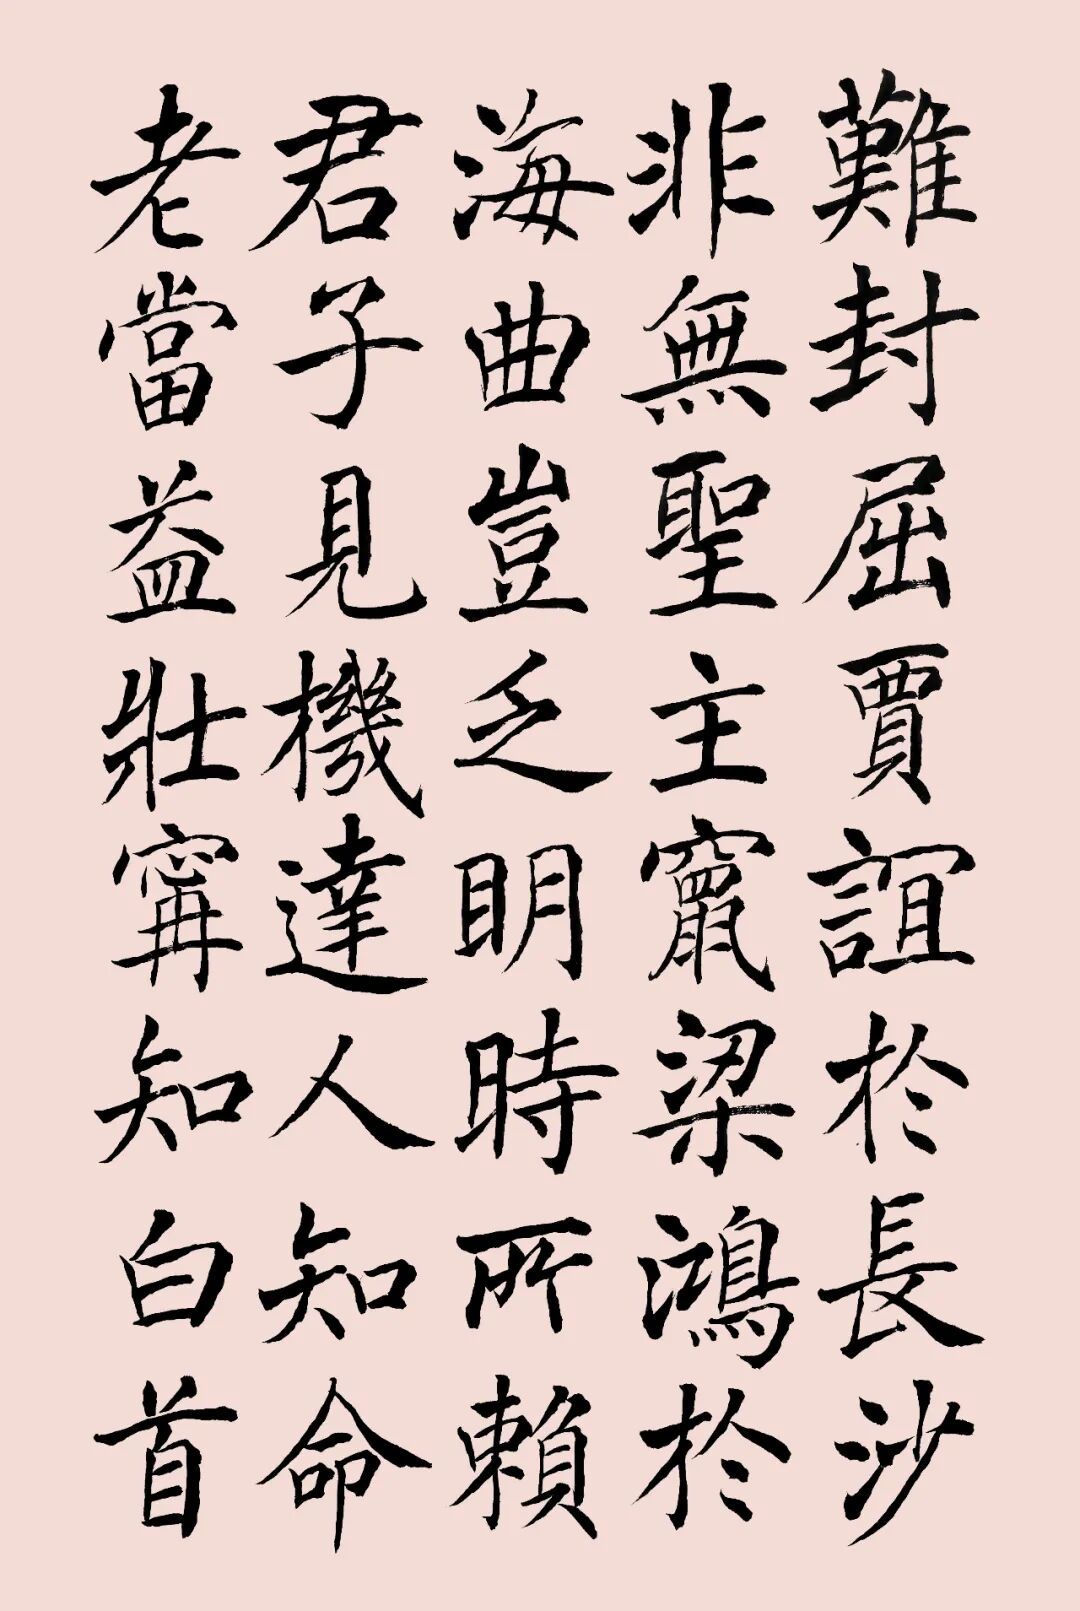 難封屈賈誼於長沙
非無聖主竄梁鴻於
海曲豈乏明時所賴
君子見機達人知命
老當益壯寧知白首